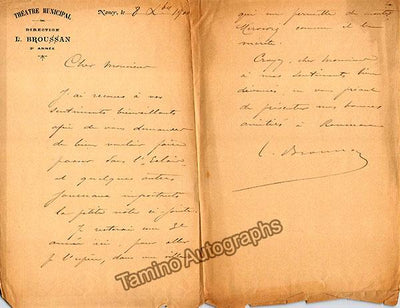 THÉATRE MUNICIPAL
DIRECTION
L. BROUSSAN
2e ANNÉE
Nancy, le 8 Xbre 1900
Cher Monsieur
J'ai recours à vos
sentiments bienveillants
afin de vous demander
de bien vouloir faire
passer dans l'Eclair
et quelques autres
journaux importants
la petite note ci jointe.
Je
ici, pour aller
dans
qui me permette de monter
comme il le
mérite
Croyez, cher Monsieur
à mes sentiments bien
dévoués, en vous priant
de présenter mes bonnes
amitiés à
L. Broussan
Tamino Autographs